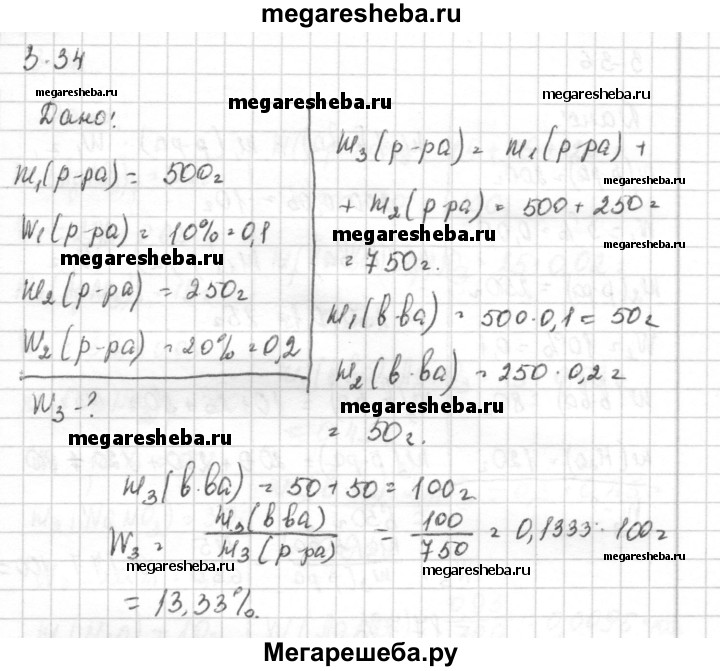 megaresheba.ru
3-34
megaresheba.ru
megaresheba.ru
megaresheba.ru
Дано!
m₁(р-ра) = 500г
W₁(р-ра) = 10% = 0,1
megaresheba.ru
m₂(р-ра) = 250г
W₂(р-ра) = 20% = 0,2
W₃ - ?
megaresheba.ru
m₃(р-ра) = m₁(р-ра) +
megaresheba.ru
+ m₂(р-ра) = 500 + 250 =
megaresheba.ru
= 750г.
megaresheba.ru
m₁(в-ва) = 500·0,1 = 50г
m₂(в-ва) = 250·0,2 =
megaresheba.ru
= 50г.
m₃(в-ва) = 50+50 = 100г
W₃ = m₃(в-ва) / m₃(р-ра) = 100 / 750 = 0,1333·100 =
megaresheba.ru
megaresheba.ru
megaresheba.ru
= 13,33%.
Мегарешеба.ру